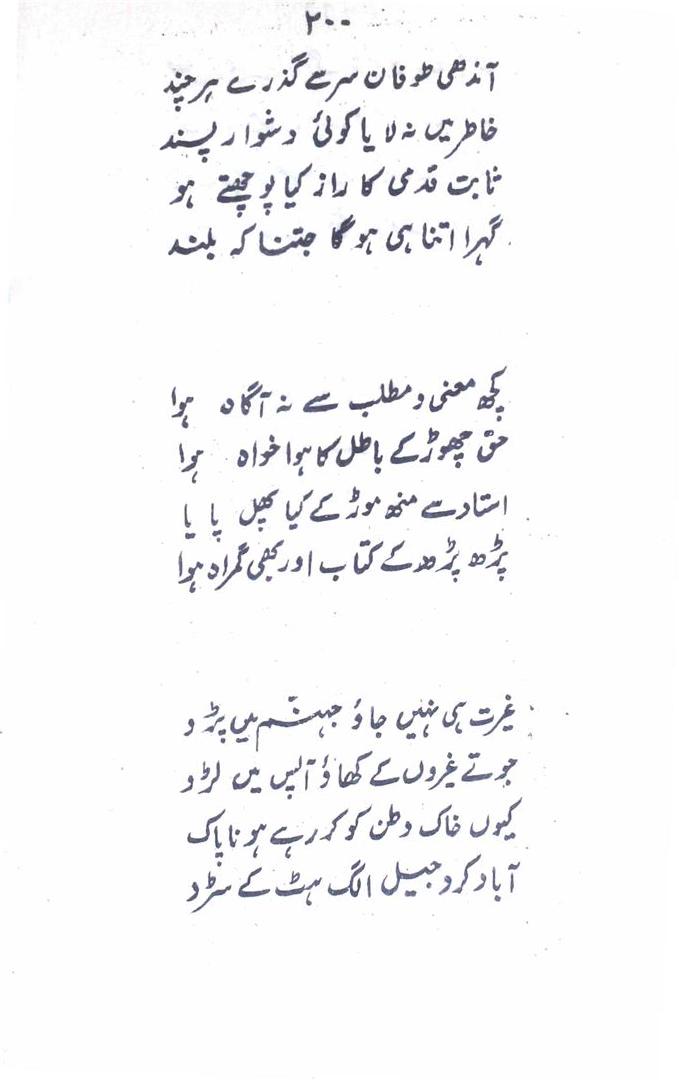 ۲۰۰
آندھی طوفان سر سے گذرے ہر چند
خاطر میں نہ لایا کوئی دشوار پسند
ثابت قدمی کا راز کیا پوچھتے ہو
گہرا اتنا ہی ہوگا جتنا کہ بلند
کچھ معنی و مطلب سے نہ آگاہ ہوا
حق چھوڑ کے باطل کا ہوا خواہ ہوا
استاد سے منھ موڑ کے کیا پھل پایا
پڑھ پڑھ کے کتاب اور بھی گمراہ ہوا
غیرت ہی نہیں جاؤ جہنّم میں پڑو
جوتے غیروں کے کھاؤ آپس میں لڑو
کیوں خاک وطن کو کر رہے ہو ناپاک
آباد کرو جیل الگ ہٹ کے سڑو